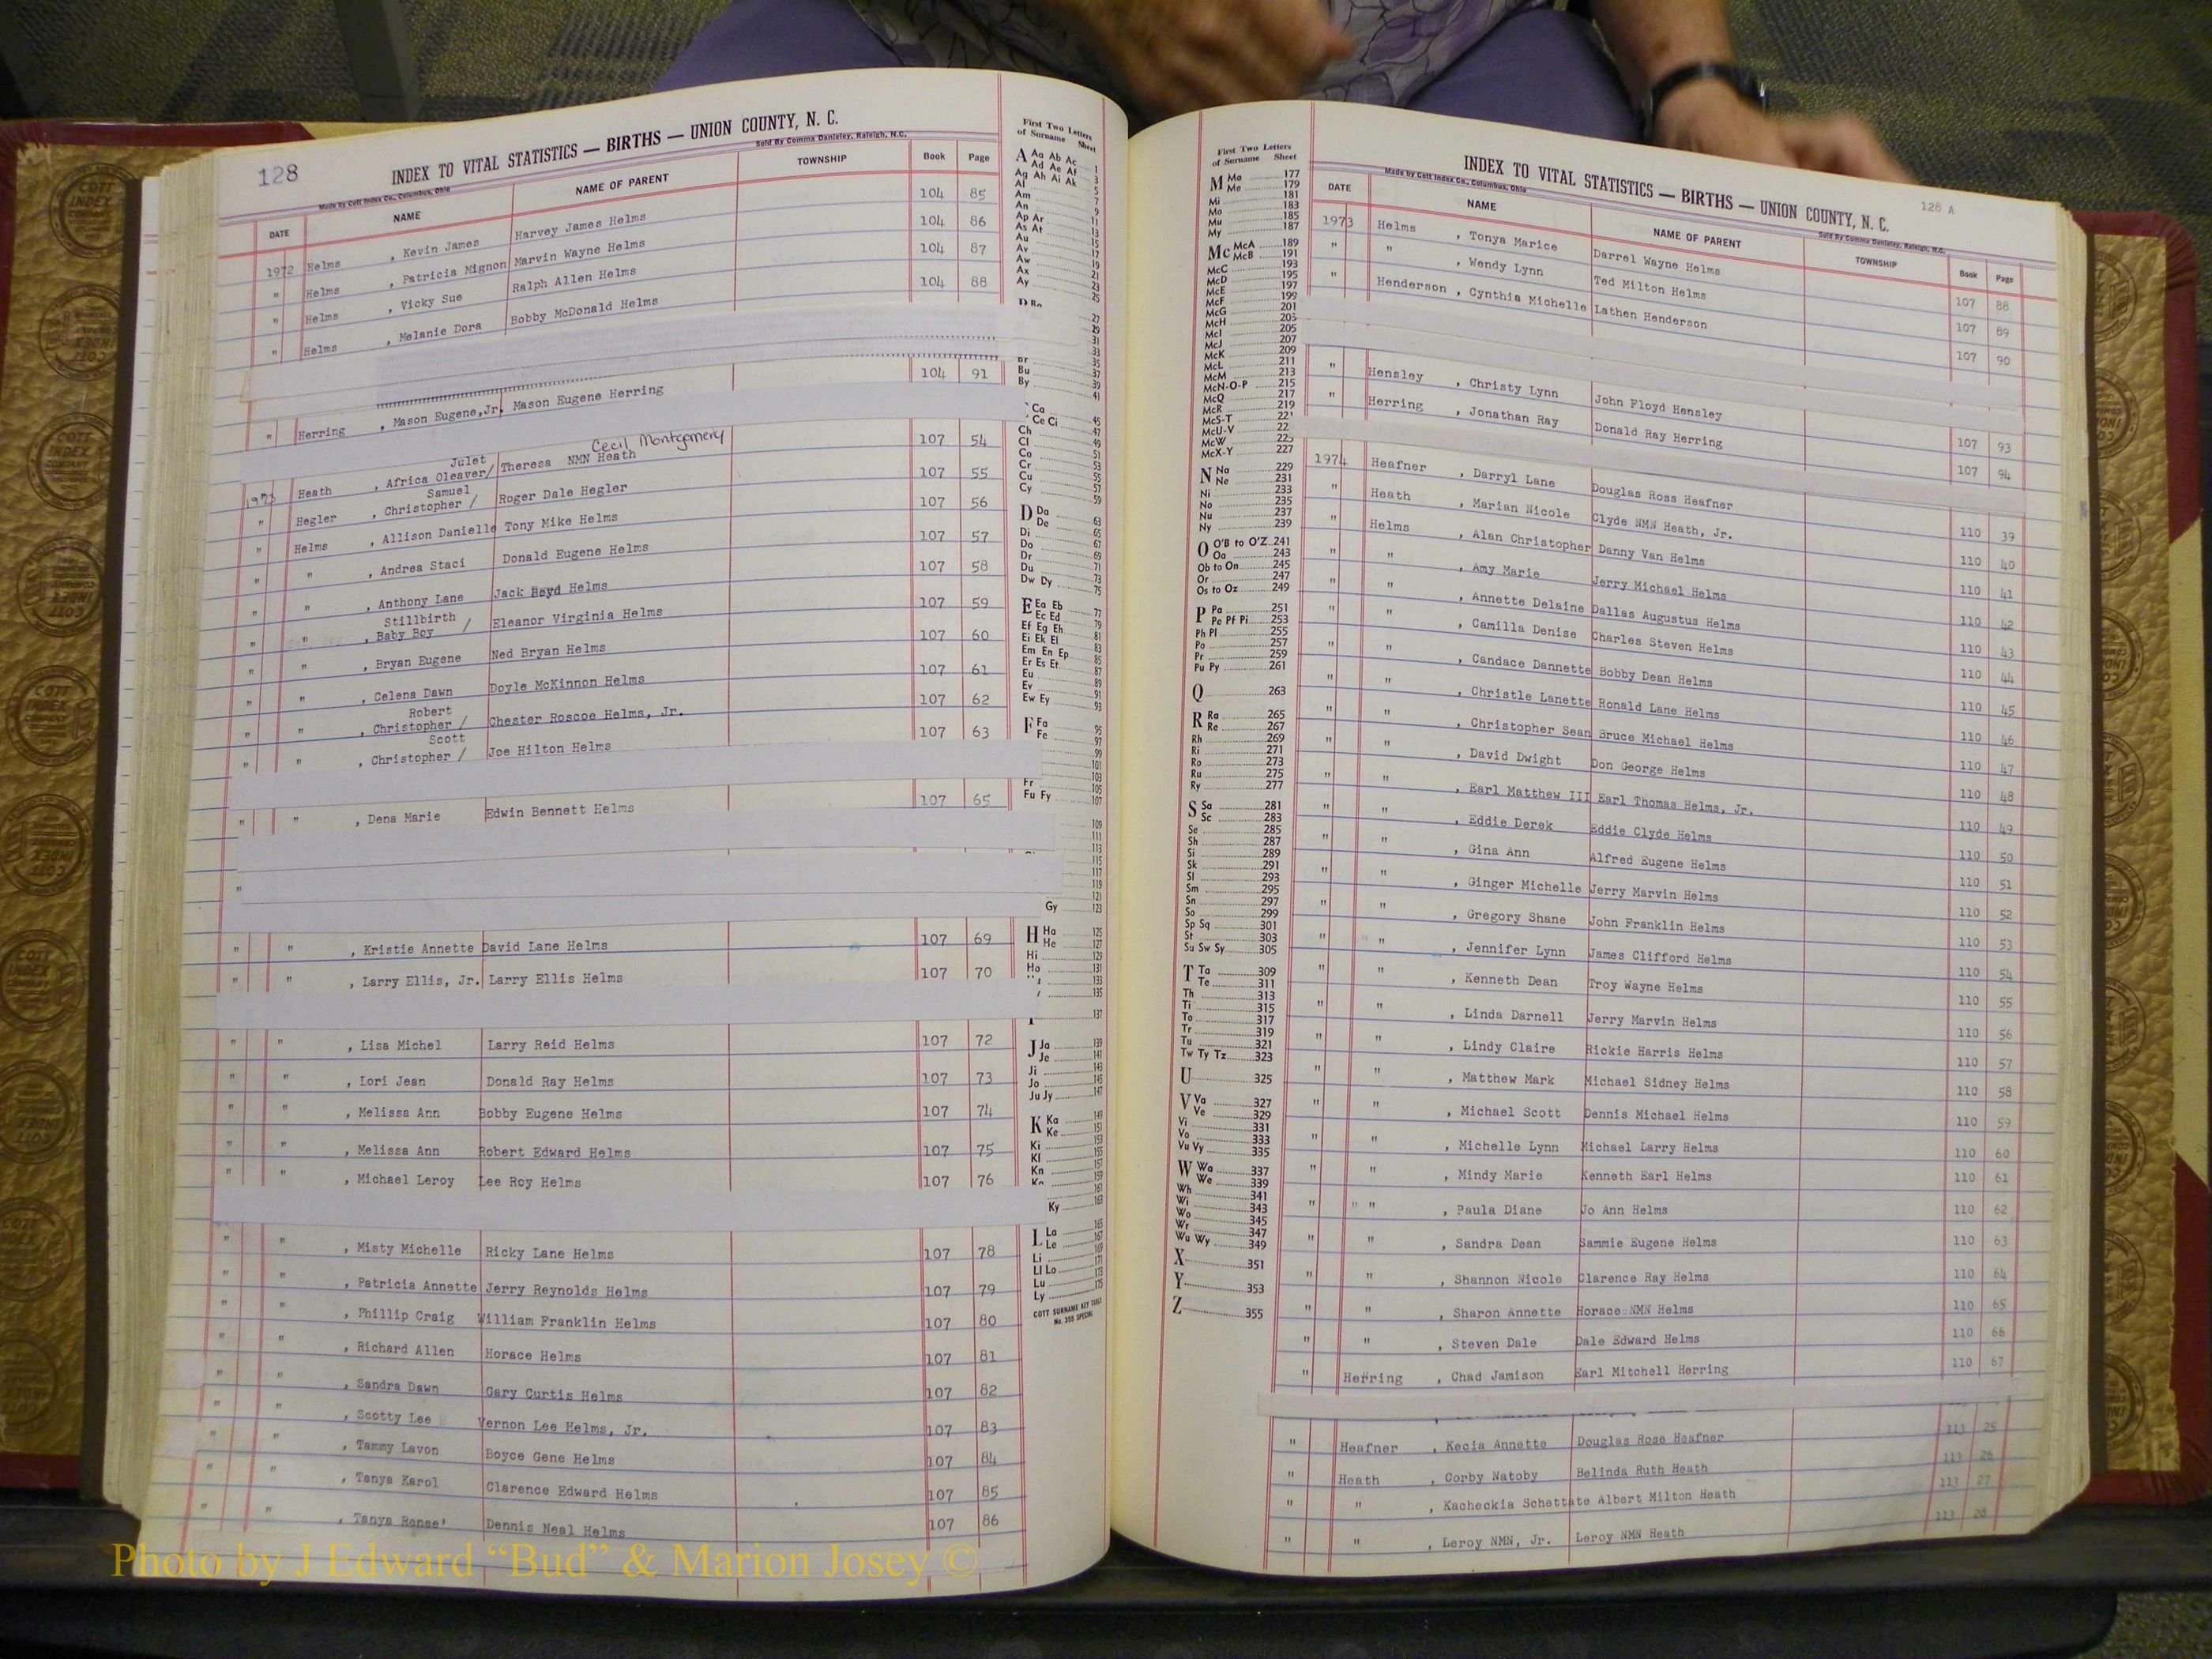 128
INDEX TO VITAL STATISTICS — BIRTHS — UNION COUNTY, N. C.
Made by Cott Index Co., Columbus, Ohio Sold By Comma Danieley, Raleigh, N.C.
DATE NAME NAME OF PARENT TOWNSHIP Book Page
1972 Helms , Kevin James Harvey James Helms 104 85
" Helms , Patricia Mignon Marvin Wayne Helms 104 86
" Helms , Vicky Sue Ralph Allen Helms 104 87
" Helms , Melanie Dora Bobby McDonald Helms 104 88
" Herring , Mason Eugene, Jr. Mason Eugene Herring 104 91
Julet Cecil Montgomery
1973 Heath , Africa Oleaver/ Theresa NMN Heath 107 54
Samuel
" Hegler , Christopher / Roger Dale Hegler 107 55
" Helms , Allison Danielle Tony Mike Helms 107 56
" " , Andrea Staci Donald Eugene Helms 107 57
" " , Anthony Lane Jack Boyd Helms 107 58
Stillbirth
" " , Baby Boy / Eleanor Virginia Helms 107 59
" " , Bryan Eugene Ned Bryan Helms 107 60
" " , Celena Dawn Doyle McKinnon Helms 107 61
Robert
" " , Christopher / Chester Roscoe Helms, Jr. 107 62
Scott
" " , Christopher / Joe Hilton Helms 107 63
" " , Dena Marie Edwin Bennett Helms 107 65
"
" " , Kristie Annette David Lane Helms 107 69
" " , Larry Ellis, Jr. Larry Ellis Helms 107 70
" " , Lisa Michel Larry Reid Helms 107 72
" " , Lori Jean Donald Ray Helms 107 73
" " , Melissa Ann Bobby Eugene Helms 107 74
" " , Melissa Ann Robert Edward Helms 107 75
" " , Michael Leroy Lee Roy Helms 107 76
" " , Misty Michelle Ricky Lane Helms 107 78
" " , Patricia Annette Jerry Reynolds Helms 107 79
" " , Phillip Craig William Franklin Helms 107 80
" " , Richard Allen Horace Helms 107 81
" " , Sandra Dawn Gary Curtis Helms 107 82
" " , Scotty Lee Vernon Lee Helms, Jr. 107 83
" " , Tammy Lavon Boyce Gene Helms 107 84
" " , Tanya Karol Clarence Edward Helms 107 85
" " , Tanya Renee' Dennis Neal Helms 107 86
First Two Letters
of Surname Sheet
A Aa Ab Ac 1
Ad Ae Af 3
Ag Ah Ai Ak 5
Al 7
Am 9
An 11
Ap Ar 13
As At 15
Au 17
Av 19
Aw 21
Ax 23
Ay 25
27
29
31
33
35
Bu 37
By 39
41
Ca 45
Ce Ci 47
Ch 49
Cl 51
Co 53
Cr 55
Cu 57
Cy 59
D Da 63
De 65
Di 67
Do 69
Dr 71
Du 73
Dw Dy 75
E Ea Eb 77
Ec Ed 79
Ef Eg Eh 81
Ei Ek El 83
Em En Ep 85
Er Es Et 87
Eu 89
Ev 91
Ew Ey 93
F Fa 95
Fe 97
99
101
103
Fr 105
Fu Fy 107
109
111
113
115
117
119
121
Gy 123
H Ha 125
He 127
Hi 129
Ho 131
133
135
137
J Ja 139
Je 141
Ji 143
Jo 145
Ju Jy 147
K Ka 149
Ke 151
Ki 153
Kl 155
Kn 157
161
Ky 163
L La 165
Le 167
Li 169
Ll Lo 171
Lu 173
Ly 175
COTT SURNAME KEY TABLE
No. 355 SPECIAL
First Two Letters
of Surname Sheet
M Ma 177
Me 179
Mi 181
Mo 183
Mu 185
My 187
Mc McA 189
McB 191
McC 193
McD 195
McE 197
McF 199
McG 201
McH 203
McI 205
McJ 207
McK 209
McL 211
McM 213
McN-O-P 215
McQ 217
McR 219
McS-T 221
McU-V 22
McW 225
McX-Y 227
N Na 229
Ne 231
Ni 233
No 235
Nu 237
Ny 239
O O'B to O'Z 241
Oa 243
Ob to On 245
Or 247
Os to Oz 249
P Pa 251
Pe Pf Pi 253
Ph Pl 255
Po 257
Pr 259
Pu Py 261
Q 263
R Ra 265
Re 267
Rh 269
Ri 271
Ro 273
Ru 275
Ry 277
S Sa 281
Sc 283
Se 285
Sh 287
Si 289
Sk 291
Sl 293
Sm 295
Sn 297
So 299
Sp Sq 301
St 303
Su Sw Sy 305
T Ta 309
Te 311
Th 313
Ti 315
To 317
Tr 319
Tu 321
Tw Ty Tz 323
U 325
V Va 327
Ve 329
Vi 331
Vo 333
Vu Vy 335
W Wa 337
We 339
Wh 341
Wi 343
Wo 345
Wr 347
Wu Wy 349
X 351
Y 353
Z 355
128 A
INDEX TO VITAL STATISTICS — BIRTHS — UNION COUNTY, N. C.
Made by Cott Index Co., Columbus, Ohio Sold By Comma Danieley, Raleigh, N.C.
DATE NAME NAME OF PARENT TOWNSHIP Book Page
1973 Helms , Tonya Marice Darrel Wayne Helms 107 88
" " , Wendy Lynn Ted Milton Helms 107 89
" Henderson , Cynthia Michelle Lathen Henderson 107 90
" Hensley , Christy Lynn John Floyd Hensley 107 93
" Herring , Jonathan Ray Donald Ray Herring 107 94
1974 Heafner , Darryl Lane Douglas Ross Heafner 110 39
" Heath , Marian Nicole Clyde NMN Heath, Jr. 110 40
" Helms , Alan Christopher Danny Van Helms 110 41
" " , Amy Marie Jerry Michael Helms 110 42
" " , Annette Delaine Dallas Augustus Helms 110 43
" " , Camilla Denise Charles Steven Helms 110 44
" " , Candace Dannette Bobby Dean Helms 110 45
" " , Christle Lanette Ronald Lane Helms 110 46
" " , Christopher Sean Bruce Michael Helms 110 47
" " , David Dwight Don George Helms 110 48
" " , Earl Matthew III Earl Thomas Helms, Jr. 110 49
" " , Eddie Derek Eddie Clyde Helms 110 50
" " , Gina Ann Alfred Eugene Helms 110 51
" " , Ginger Michelle Jerry Marvin Helms 110 52
" " , Gregory Shane John Franklin Helms 110 53
" " , Jennifer Lynn James Clifford Helms 110 54
" " , Kenneth Dean Troy Wayne Helms 110 55
" " , Linda Darnell Jerry Marvin Helms 110 56
" " , Lindy Claire Rickie Harris Helms 110 57
" " , Matthew Mark Michael Sidney Helms 110 58
" " , Michael Scott Dennis Michael Helms 110 59
" " , Michelle Lynn Michael Larry Helms 110 60
" " , Mindy Marie Kenneth Earl Helms 110 61
" " , Paula Diane Jo Ann Helms 110 62
" " , Sandra Dean Sammie Eugene Helms 110 63
" " , Shannon Nicole Clarence Ray Helms 110 64
" " , Sharon Annette Horace NMN Helms 110 65
" " , Steven Dale Dale Edward Helms 110 66
" Herring , Chad Jamison Earl Mitchell Herring 110 67
" Heafner , Kecia Annette Douglas Rose Heafner 113 25
" Heath , Corby Natoby Belinda Ruth Heath 113 26
" " , Kacheckia Schettate Albert Milton Heath 113 27
" " , Leroy NMN, Jr. Leroy NMN Heath 113 28
Photo by J Edward “Bud” & Marion Josey ©